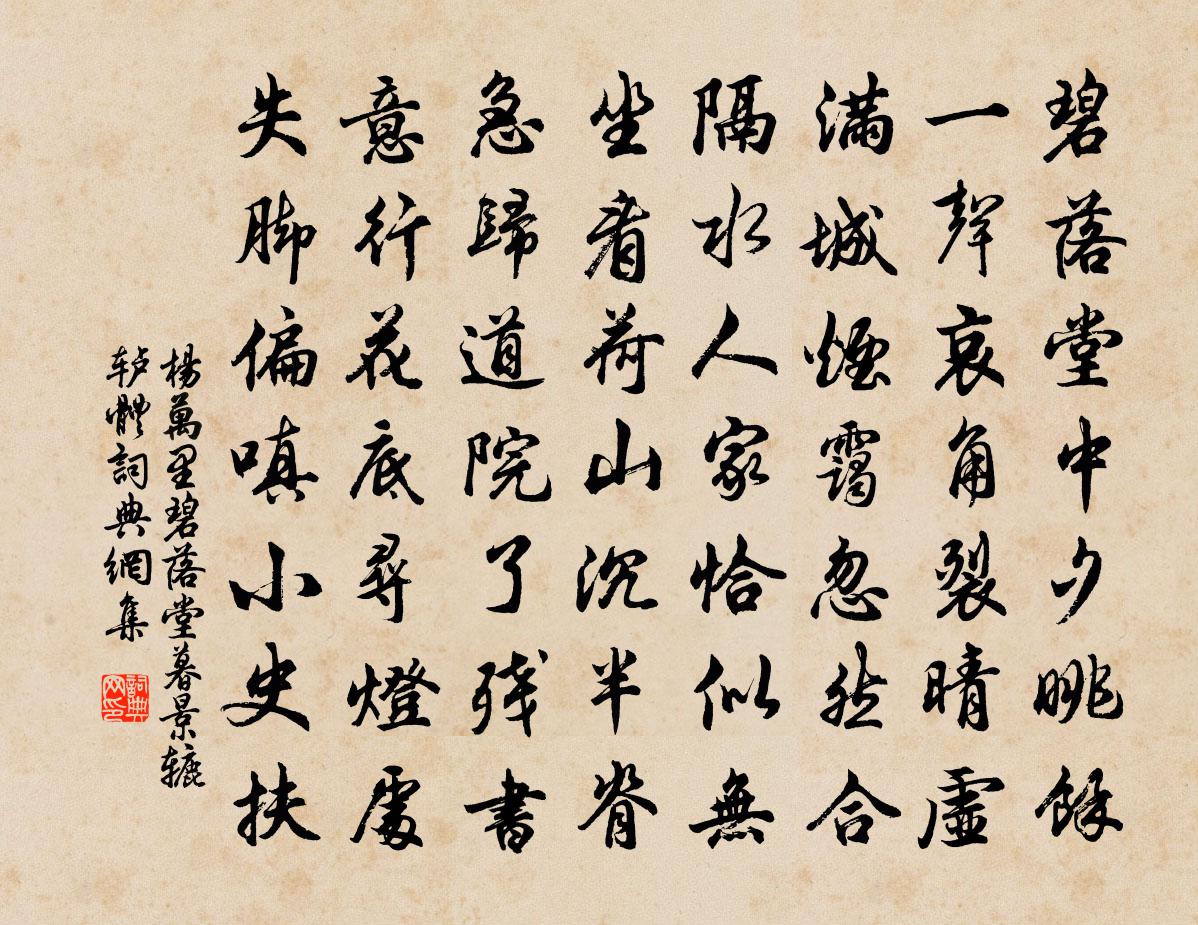 碧落堂中夕眺餘
一聲哀角裂晴虛
滿城煙靄忽然合
隔水人家恰似無
坐看荷山沉半脊
急歸道院了殘書
意行花底尋燈處
失脚偏嗔小史扶
楊萬里碧落堂暮景辘
轳體詞典網集
詞典
网印